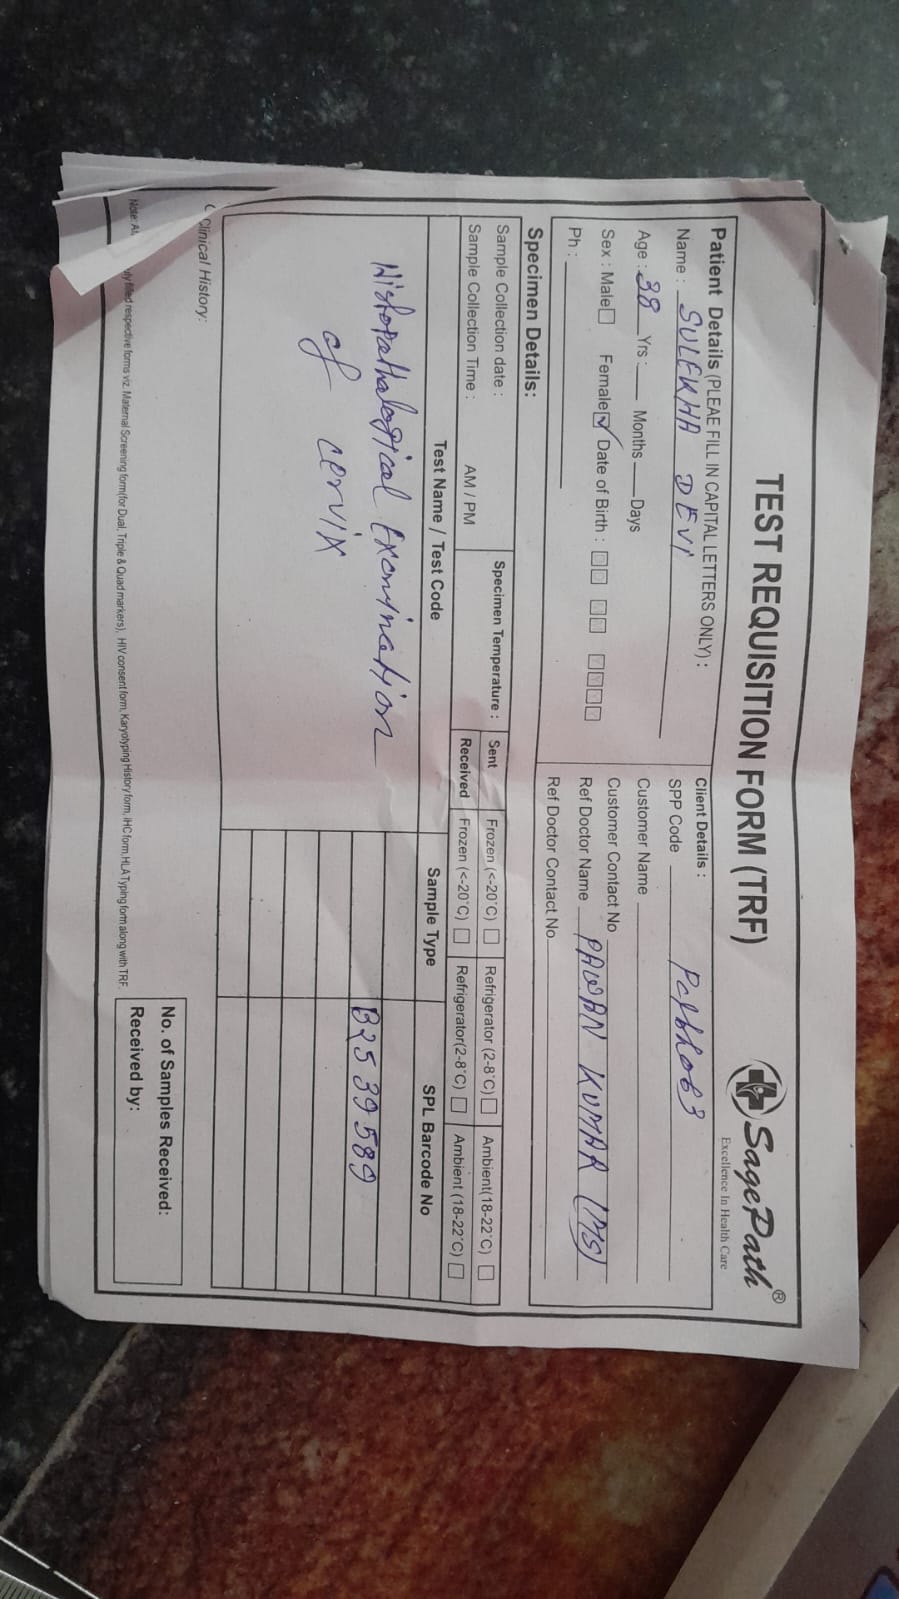 TEST REQUISITION FORM (TRF)
SagePath®
Excellence In Health Care
Patient Details (PLEAE FILL IN CAPITAL LETTERS ONLY) :
Name : SULEKHA DEVI
Age : 38 Yrs : Months Days
Sex : Male Female ✓ Date of Birth :
Ph :
Client Details :
SPP Code
Customer Name
Customer Contact No
Ref Doctor Name PAWAN KUMAR (MS)
Ref Doctor Contact No
Specimen Details:
Sample Collection date :
Sample Collection Time : AM / PM
Specimen Temperature :
Sent Frozen (<-20°C) Refrigerator (2-8°C) Ambient(18-22°C)
Received Frozen (<-20°C) Refrigerator(2-8°C) Ambient (18-22°C)
Test Name / Test Code Sample Type SPL Barcode No
Histopathological Examination B2539589
of cervix
Clinical History:
No. of Samples Received:
Received by:
filled respective forms viz. Maternal Screening form(for Dual, Triple & Quad markers), HIV consent form, Karyotyping History form, IHC form, HLA Typing form along with TRF.